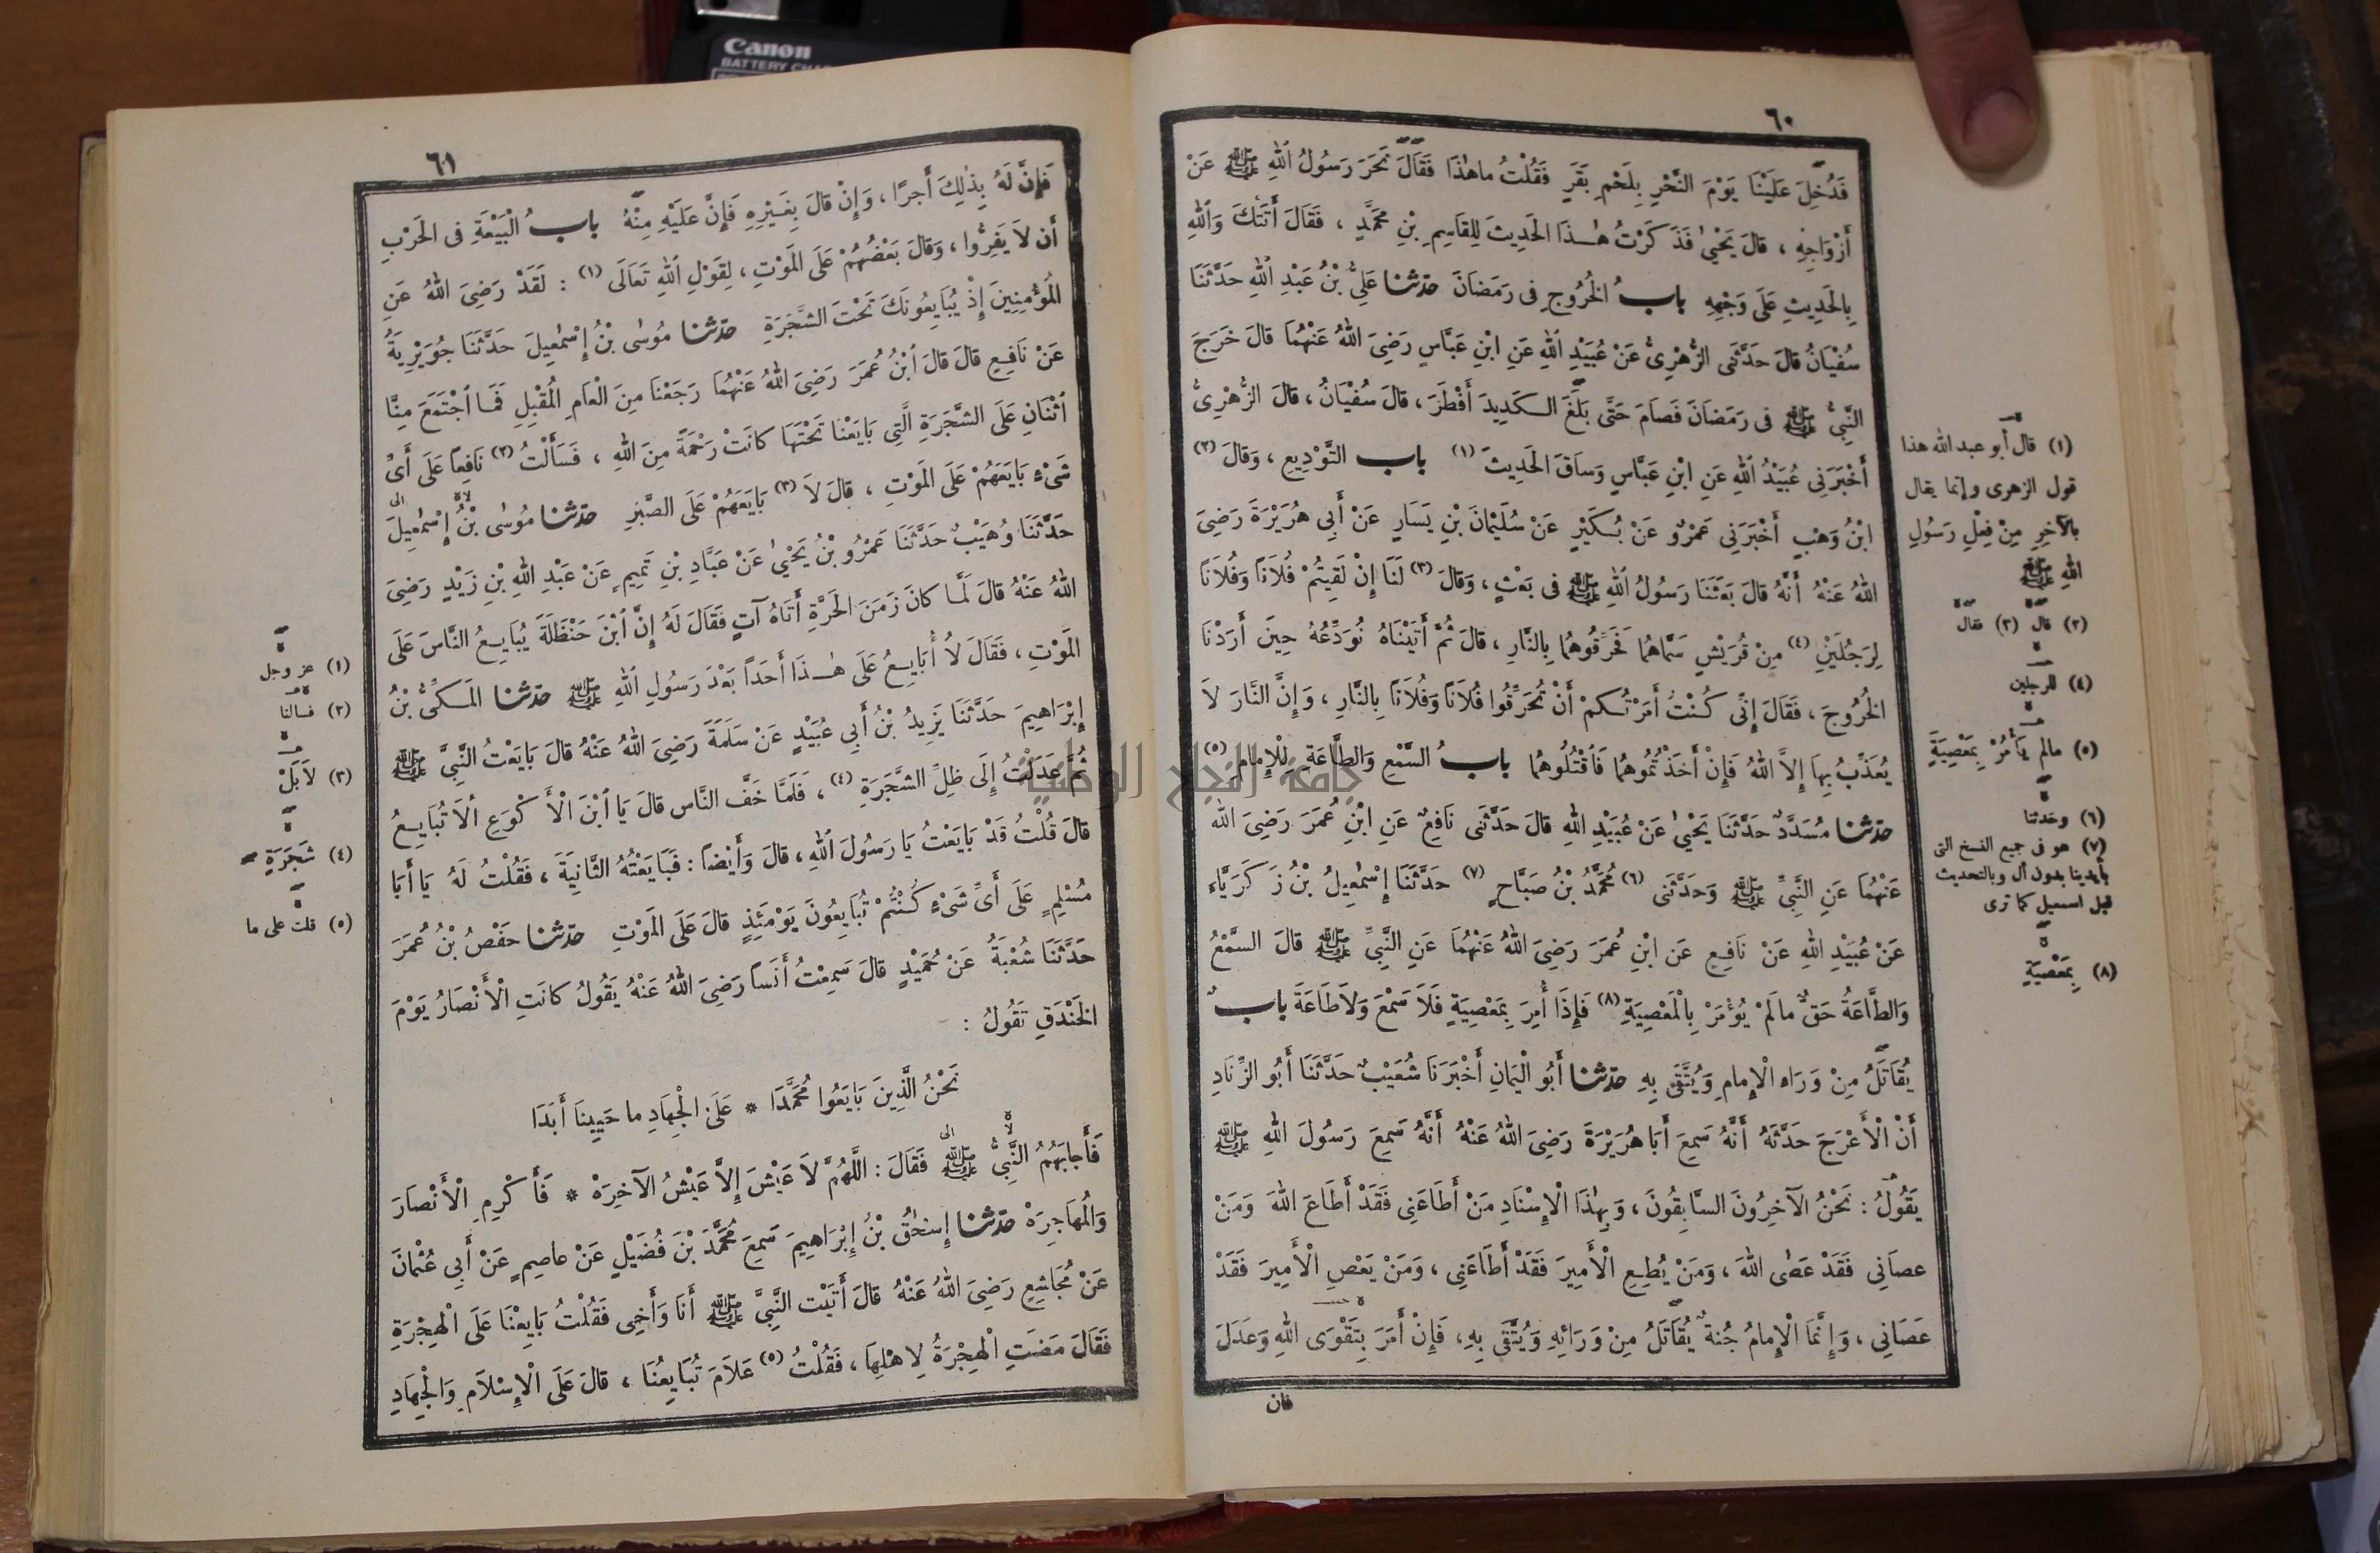 Canon
BATTERY CHA
٦٠
فَدُخِلَ عَلَيْنَا يَوْمَ النَّحْرِ بِلَحْمِ بَقَرٍ فَقُلْتُ ما هٰذَا فَقَالَ نَحَرَ رَسُولُ ٱللهِ ﷺ عَنْ
أَزْوَاجِهِ ، قالَ يَحْيٰي فَذَكَرْتُ هٰذَا الحَدِيثَ لِلقَاسِمِ بْنِ مُحَمَّدٍ ، فَقَالَ أَتَتْكَ وَٱللهِ
بِالحَدِيثِ عَلَى وَجْهِهِ بابُ الخُرُوجِ فى رَمَضَانَ حدّثنا عَلِىُّ بْنُ عَبْدِ ٱللهِ حَدَّثَنَا
سُفْيَانُ قالَ حَدَّثَنِى الزُّهْرِىُّ عَنْ عُبَيْدِ ٱللهِ عَنِ ابْنِ عَبَّاسٍ رَضِىَ اللهُ عَنْهُمَا قالَ خَرَجَ
النَّبِىُّ ﷺ فى رَمَضَانَ فَصَامَ حَتَّى بَلَغَ الْكَدِيدَ أَفْطَرَ ، قالَ سُفْيَانُ ، قالَ الزُّهْرِىُّ
أَخْبَرَنِى عُبَيْدُ ٱللهِ عَنِ ابْنِ عَبَّاسٍ وَسَاقَ الحَدِيثَ (١) باب التَّوْدِيعِ ، وَقالَ (٢)
ابْنُ وَهْبٍ أَخْبَرَنِى عَمْرٌو عَنْ بُكَيْرٍ عَنْ سُلَيْمَانَ بْنِ يَسَارٍ عَنْ أَبِى هُرَيْرَةَ رَضِىَ
اللهُ عَنْهُ أَنَّهُ قالَ بَعَثَنَا رَسُولُ ٱللهِ ﷺ فى بَعْثٍ ، وَقالَ (٣) لَنَا إِنْ لَقِيتُمْ فُلاَنًا وَفُلاَنًا
لِرَجُلَيْنِ (٤) مِنْ قُرَيْشٍ سَمَّاهُمَا فَحَرِّقُوهُمَا بِالنَّارِ ، قالَ ثُمَّ أَتَيْنَاهُ نُوَدِّعُهُ حِينَ أَرَدْنَا
الخُرُوجَ ، فَقَالَ إِنِّى كُنْتُ أَمَرْتُكُمْ أَنْ تُحَرِّقُوا فُلاَنًا وَفُلاَنًا بِالنَّارِ ، وَإِنَّ النَّارَ لاَ
يُعَذِّبُ بِهَا إِلاَّ اللهُ فَإِنْ أَخَذْتُمُوهُمَا فَٱقْتُلُوهُمَا بابُ السَّمْعِ وَالطَّاعَةِ لِلْإِمامِ (٥)
حدّثنا مُسَدَّدٌ حَدَّثَنَا يَحْيٰى عَنْ عُبَيْدِ اللهِ قالَ حَدَّثَنِى نَافِعٌ عَنِ ابْنِ عُمَرَ رَضِىَ اللهُ
عَنْهُمَا عَنِ النَّبِىِّ ﷺ وَحَدَّثَنِى (٦) مُحَمَّدُ بْنُ صَبَّاحٍ (٧) حَدَّثَنَا إِسْمٰعِيلُ بْنُ زَكَرِيَّاءَ
عَنْ عُبَيْدِ اللهِ عَنْ نَافِعٍ عَنِ ابْنِ عُمَرَ رَضِىَ اللهُ عَنْهُمَا عَنِ النَّبِىِّ ﷺ قالَ السَّمْعُ
وَالطَّاعَةُ حَقٌّ مالَمْ يُؤْمَرْ بِالْمَعْصِيَةِ (٨) فَإِذَا أُمِرَ بِمَعْصِيَةٍ فَلاَ سَمْعَ وَلاَ طَاعَةَ بابٌ
يُقَاتَلُ مِنْ وَرَاءِ الْإِمامِ وَيُتَّقَى بِهِ حدّثنا أَبُو الْيَمانِ أَخْبَرَنَا شُعَيْبٌ حَدَّثَنَا أَبُو الزِّنَادِ
أَنَّ الْأَعْرَجَ حَدَّثَهُ أَنَّهُ سَمِعَ أَبَا هُرَيْرَةَ رَضِىَ اللهُ عَنْهُ أَنَّهُ سَمِعَ رَسُولَ اللهِ ﷺ
يَقُولُ : نَحْنُ الْآخِرُونَ السَّابِقُونَ ، وَبِهٰذَا الْإِسْنَادِ مَنْ أَطَاعَنِى فَقَدْ أَطَاعَ اللهَ وَمَنْ
عصَانِى فَقَدْ عَصٰى اللهَ ، وَمَنْ يُطِعِ الْأَمِيرَ فَقَدْ أَطَاعَنِى ، وَمَنْ يَعْصِ الْأَمِيرَ فَقَدْ
عَصَانِى ، وَإِنَّمَا الْإِمامُ جُنَّةٌ يُقَاتَلُ مِنْ وَرَائِهِ وَيُتَّقَى بِهِ ، فَإِنْ أَمَرَ بِتَقْوَى اللهِ وَعَدَلَ
فان
(١) قال أبو عبد الله هذا
قول الزهرى وإنما يقال
بالآخِرِ مِنْ فِعْلِ رَسُولِ
اللهِ ﷺ
(٢) قال (٣) فقال
(٤) للرجلين
(٥) مالم يَأْمُرْ بِمَعْصِيَةٍ
(٦) وحدثنا
(٧) هو فى جميع النسخ التى
بأيدينا بدون أل وبالتحديث
قبل اسمعيل كما ترى
(٨) بِمَعْصِيَةٍ
٦١
فَإِنَّ لَهُ بِذٰلِكَ أَجرًا ، وَإِنْ قالَ بِغَيْرِهِ فَإِنَّ عَلَيْهِ مِنْهُ بابُ الْبَيْعَةِ فى الحَرْبِ
أَن لاَ يَفِرُّوا ، وَقالَ بَعْضُهُمْ عَلَى المَوْتِ ، لِقَوْلِ ٱللهِ تَعَالَى (١) : لَقَدْ رَضِىَ اللهُ عَنِ
المُؤْمِنِينَ إِذْ يُبَايِعُونَكَ تَحْتَ الشَّجَرَةِ حدّثنا مُوسٰى بْنُ إِسْمٰعِيلَ حَدَّثَنَا جُوَيْرِيَةُ
عَنْ نَافِعٍ قالَ قالَ ٱبْنُ عُمَرَ رَضِىَ اللهُ عَنْهُمَا رَجَعْنَا مِنَ الْعَامِ المُقْبِلِ فَمَا ٱجْتَمَعَ مِنَّا
ٱثْنَانِ عَلَى الشَّجَرَةِ الَّتِى بَايَعْنَا تَحْتَهَا كانَتْ رَحْمَةً مِنَ اللهِ ، فَسَأَلْتُ (٢) نَافِعًا عَلَى أَىِّ
شَىْءٍ بَايَعَهُمْ عَلَى المَوْتِ ، قالَ لاَ (٣) بَايَعَهُمْ عَلَى الصَّبْرِ حدّثنا مُوسٰى بْنُ إِسْمٰعِيلَ
حَدَّثَنَا وُهَيْبٌ حَدَّثَنَا عَمْرُو بْنُ يَحْيٰى عَنْ عَبَّادِ بْنِ تَمِيمٍ عَنْ عَبْدِ اللهِ بْنِ زَيْدٍ رَضِىَ
اللهُ عَنْهُ قالَ لَمَّا كانَ زَمَنَ الحَرَّةِ أَتَاهُ آتٍ فَقَالَ لَهُ إِنَّ ٱبْنَ حَنْظَلَةَ يُبَايِعُ النَّاسَ عَلَى
المَوْتِ ، فَقَالَ لاَ أُبَايِعُ عَلَى هٰذَا أَحَدًا بَعْدَ رَسُولِ اللهِ ﷺ حدّثنا المَكِّىُّ بْنُ
إِبْرَاهِيمَ حَدَّثَنَا يَزِيدُ بْنُ أَبِى عُبَيْدٍ عَنْ سَلَمَةَ رَضِىَ اللهُ عَنْهُ قالَ بَايَعْتُ النَّبِىَّ ﷺ
ثُمَّ عَدَلْتُ إِلَى ظِلِّ الشَّجَرَةِ (٤) ، فَلَمَّا خَفَّ النَّاسُ قالَ يَا ٱبْنَ الْأَكْوَعِ أَلاَ تُبَايِعُ
قالَ قُلْتُ قَدْ بَايَعْتُ يَا رَسُولَ ٱللهِ ، قالَ وَأَيْضًا : فَبَايَعْتُهُ الثَّانِيَةَ ، فَقُلْتُ لَهُ يَا أَبَا
مُسْلِمٍ عَلَى أَىِّ شَىْءٍ كُنْتُمْ تُبَايِعُونَ يَوْمَئِذٍ قالَ عَلَى المَوْتِ حدّثنا حَفْصُ بْنُ عُمَرَ
حَدَّثَنَا شُعْبَةُ عَنْ حُمَيْدٍ قالَ سَمِعْتُ أَنَسًا رَضِىَ اللهُ عَنْهُ يَقُولُ كانَتِ الْأَنْصَارُ يَوْمَ
الخَنْدَقِ تَقُولُ :
نَحْنُ الَّذِينَ بَايَعُوا مُحَمَّدَا * عَلَى الْجِهَادِ ما حَيِينَا أَبَدَا
فَأَجابَهُمُ النَّبِىُّ ﷺ فَقَالَ : اللَّهُمَّ لاَ عَيْشَ إِلاَّ عَيْشُ الآخِرَهْ * فَأَكْرِمِ الْأَنْصَارَ
وَالمُهَاجِرَهْ حدّثنا إِسْحٰقُ بْنُ إِبْرَاهِيمَ سَمِعَ مُحَمَّدَ بْنَ فُضَيْلٍ عَنْ عاصِمٍ عَنْ أَبِى عُثْمَانَ
عَنْ مُجَاشِعٍ رَضِىَ اللهُ عَنْهُ قالَ أَتَيْتُ النَّبِىَّ ﷺ أَنَا وَأَخِى فَقُلْتُ بَايِعْنَا عَلَى الْهِجْرَةِ
فَقَالَ مَضَتِ الْهِجْرَةُ لِاهْلِهَا ، فَقُلْتُ (٥) عَلاَمَ تُبَايِعُنَا ، قالَ عَلَى الْإِسْلاَمِ وَالْجِهَادِ
(١) عز وجل
(٢) فسالنا
(٣) لاَ بَلْ
(٤) شَجَرَةٍ
(٥) قلت على ما
جامعة النجاح الوطنية